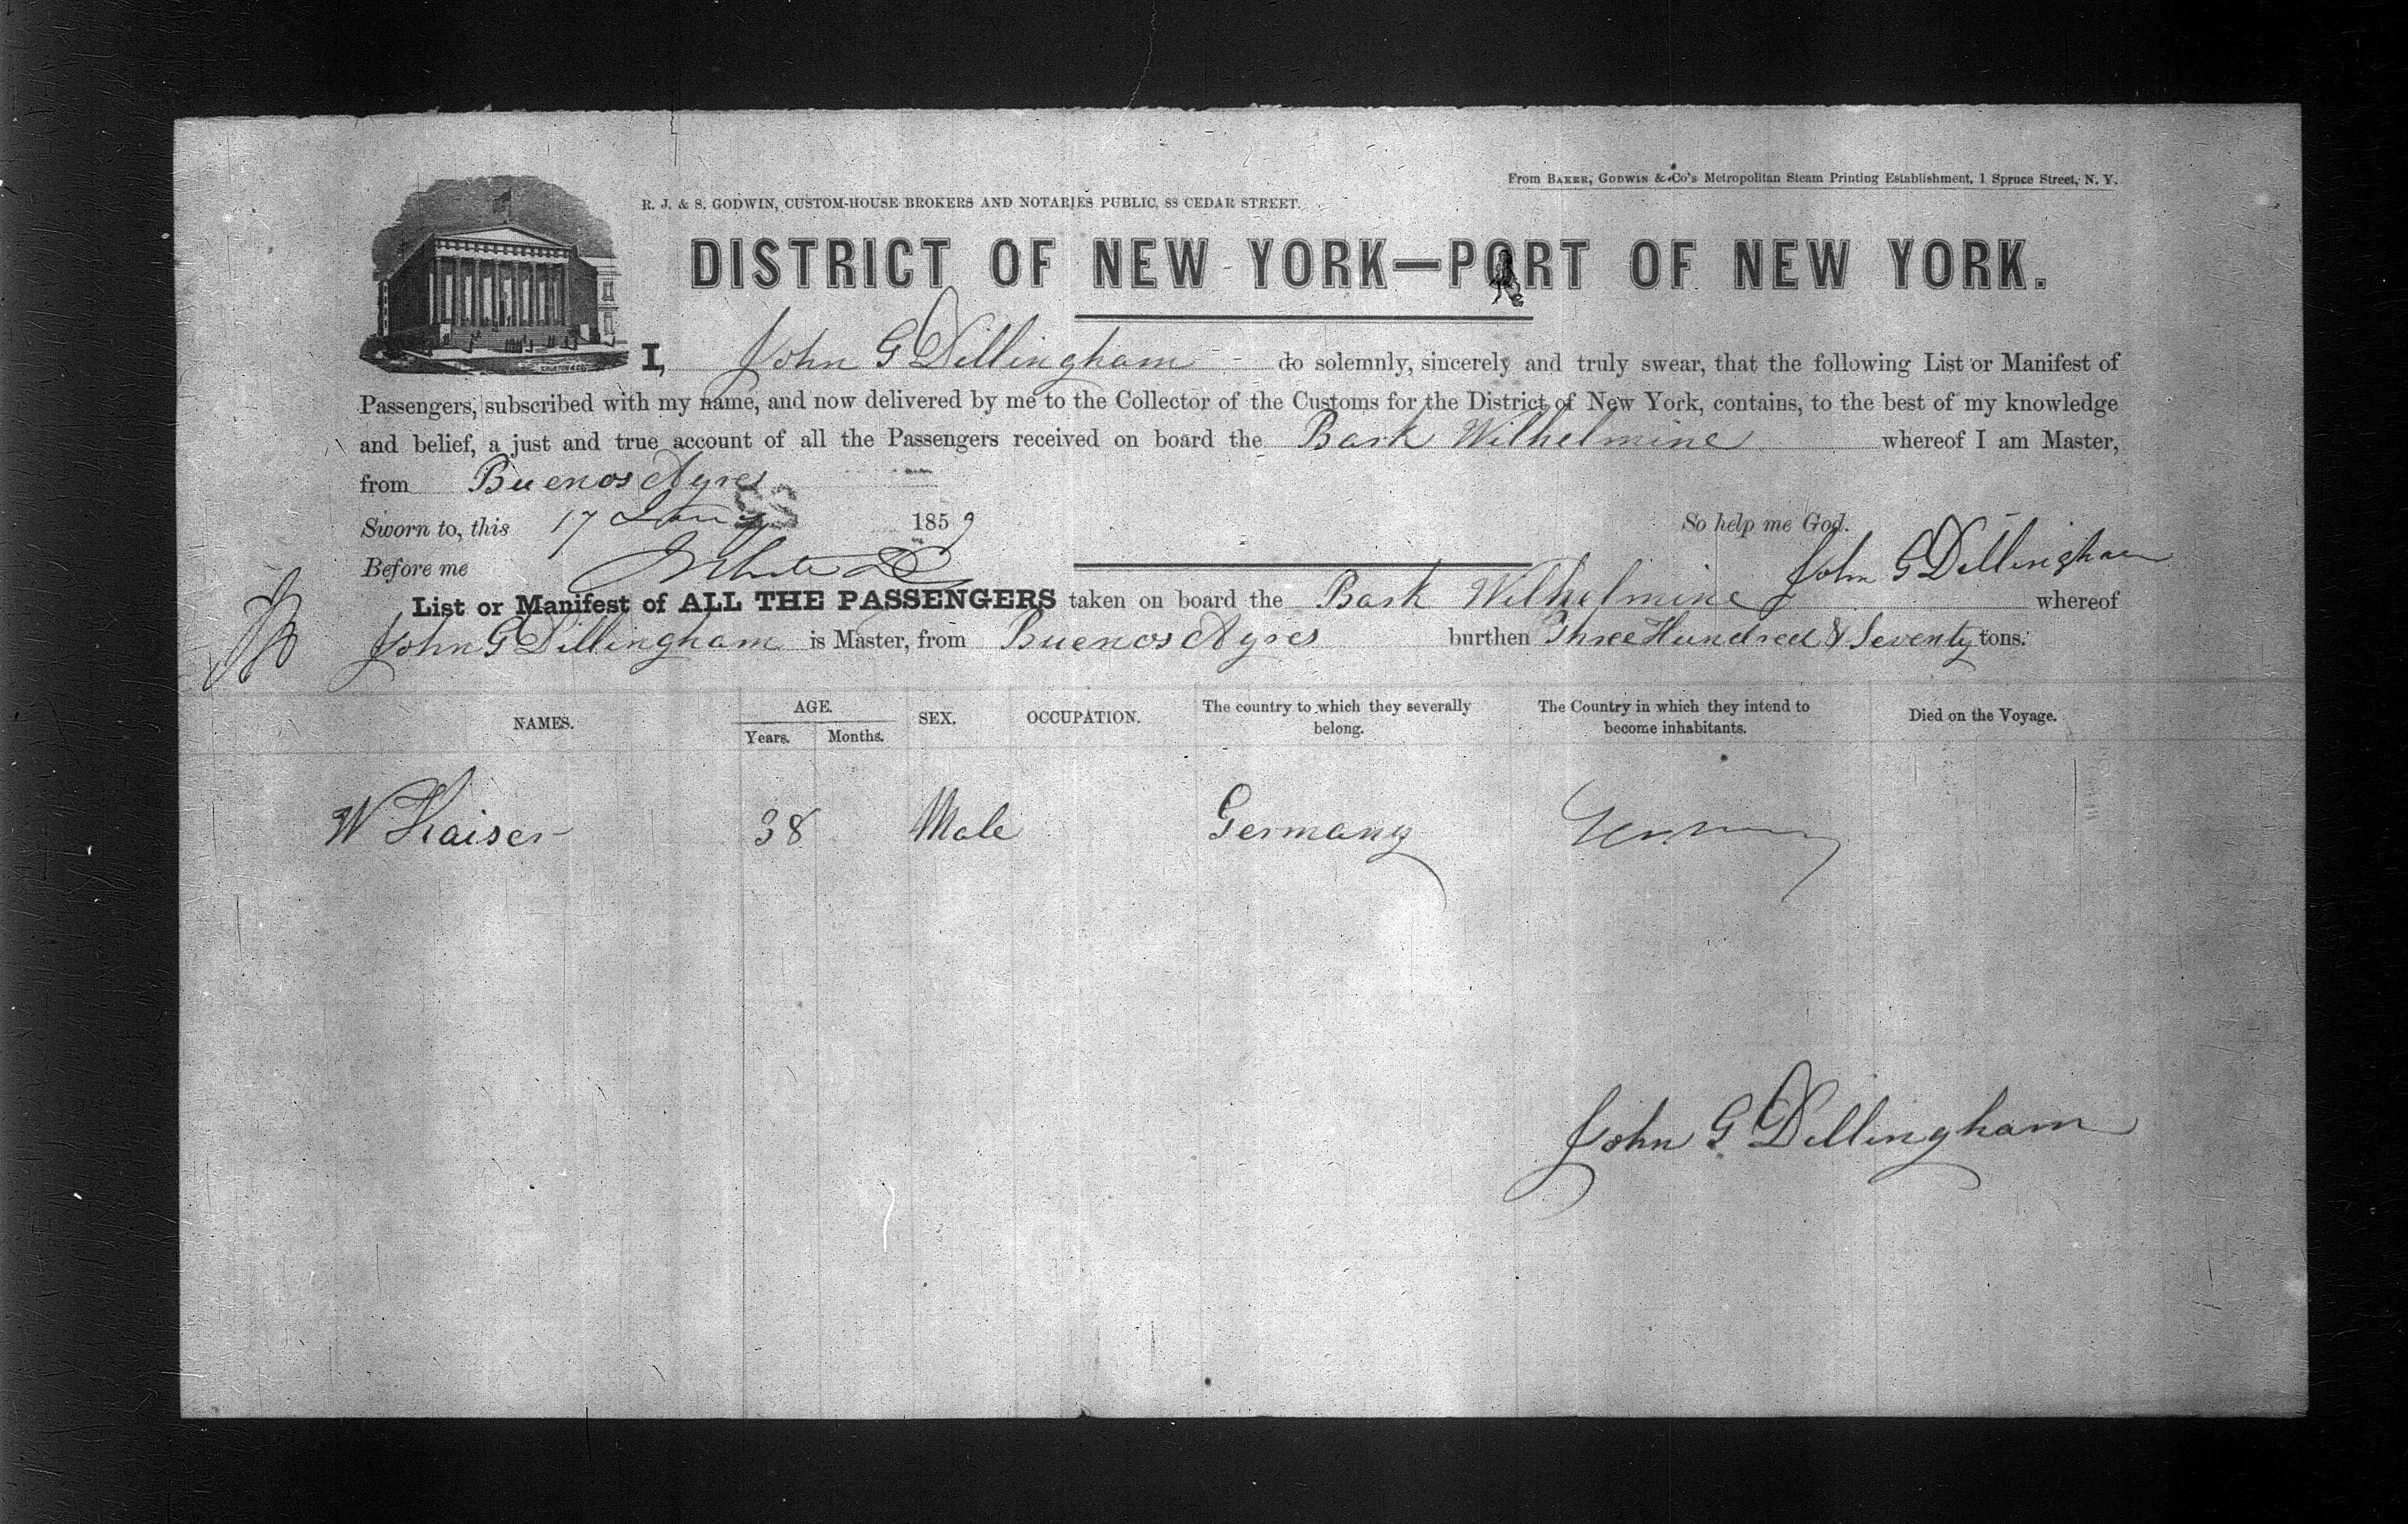 From BAKER, GODWIN & Co's Metropolitan Steam Printing Establishment, 1 Spruce Street, N. Y.
R. J. & S. GODWIN, CUSTOM-HOUSE BROKERS AND NOTARIES PUBLIC, 88 CEDAR STREET.
DISTRICT OF NEW YORK—PORT OF NEW YORK.
I, John G Dillingham do solemnly, sincerely and truly swear, that the following List or Manifest of
Passengers, subscribed with my name, and now delivered by me to the Collector of the Customs for the District of New York, contains, to the best of my knowledge
and belief, a just and true account of all the Passengers received on board the Bark Wilhelmine whereof I am Master,
from Buenos Ayres
Sworn to, this 17 Jany 1859 So help me God.
Before me John G Dillingham
List or Manifest of ALL THE PASSENGERS taken on board the Bark Wilhelmine whereof
John G Dillingham is Master, from Buenos Ayres burthen Three Hundred & Seventy tons.
NAMES. AGE. Years. Months. SEX. OCCUPATION. The country to which they severally belong. The Country in which they intend to become inhabitants. Died on the Voyage.
W Kaiser 38 Male Germany Germany
John G Dillingham